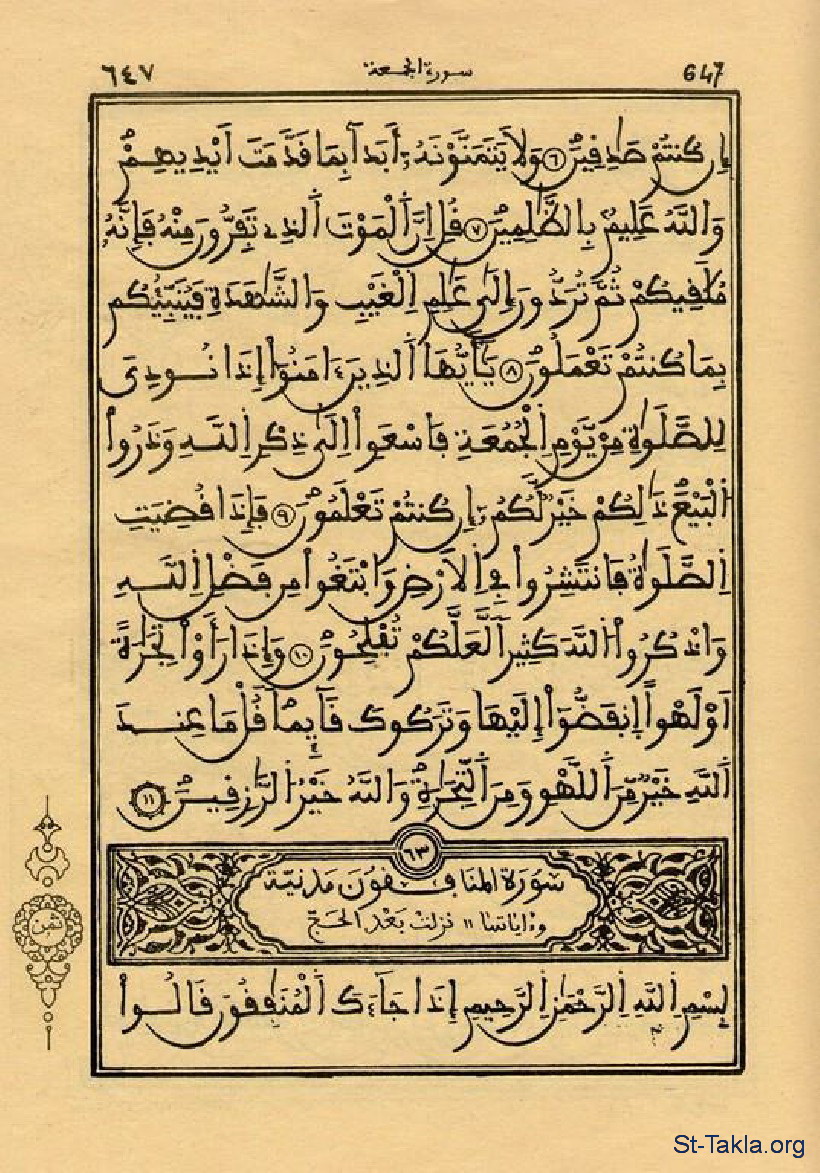 ٦٤٧ سورة الجمعة 647
إِن كُنتُمْ صَٰدِفِينَ ٦ وَلَا يَتَمَنَّوْنَهُۥٓ أَبَداَۢ بِمَا فَدَّمَتَ اَيْدِيهِمْ
وَاللَّهُ عَلِيمُۢ بِالظَّٰلِمِينَ ٧ فُلِ اِنَّ اَلْمَوْتَ اَلذِے تَفِرُّونَ مِنْهُ فَإِنَّهُۥ
مُلَٰفِيكُمْ ثُمَّ تُرَدُّونَ إِلَىٰ عَٰلِمِ اِلْغَيْبِ وَالشَّهَٰدَةِ فَيُنَبِّئُكُم
بِمَا كُنتُمْ تَعْمَلُونَ ٨ يَٰٓأَيُّهَا اَلذِينَ ءَامَنُوٓاْ إِذَا نُودِىَ
لِلصَّلَوٰةِ مِنْ يَّوْمِ اِلْجُمُعَةِ فَاسْعَوِاْ اِلَىٰ ذِكْرِ اِللَّهِ وَذَرُواْ
اُلْبَيْعَ ذَٰلِكُمْ خَيْرٌ لَّكُمُۥٓ إِن كُنتُمْ تَعْلَمُونَ ٩ فَإِذَا فُضِيَتِ
اِلصَّلَوٰةُ فَانتَشِرُواْ فِے اِلَارْضِ وَابْتَغُواْ مِن فَضْلِ اِللَّهِ
وَاذْكُرُواْ اُللَّهَ كَثِيراً لَّعَلَّكُمْ تُفْلِحُونَ ١٠ وَإِذَا رَأَوْاْ تِجَٰرَةً
اَوْ لَهْواً اِنفَضُّوٓاْ إِلَيْهَا وَتَرَكُوكَ فَآئِماً فُلْ مَا عِندَ
اَللَّهِ خَيْرٌ مِّنَ اَللَّهْوِ وَمِنَ اَلتِّجَٰرَةِ وَاللَّهُ خَيْرُ اُلرَّٰزِفِينَ ١١
٦٣
سورة المنافقون مدنية
وءاياتها ١١ نزلت بعد الحج
ثمن
بِسْمِ اِللَّهِ اِلرَّحْمَٰنِ اِلرَّحِيمِ إِذَا جَآءَكَ اَلْمُنَٰفِفُونَ فَالُواْ
St-Takla.org